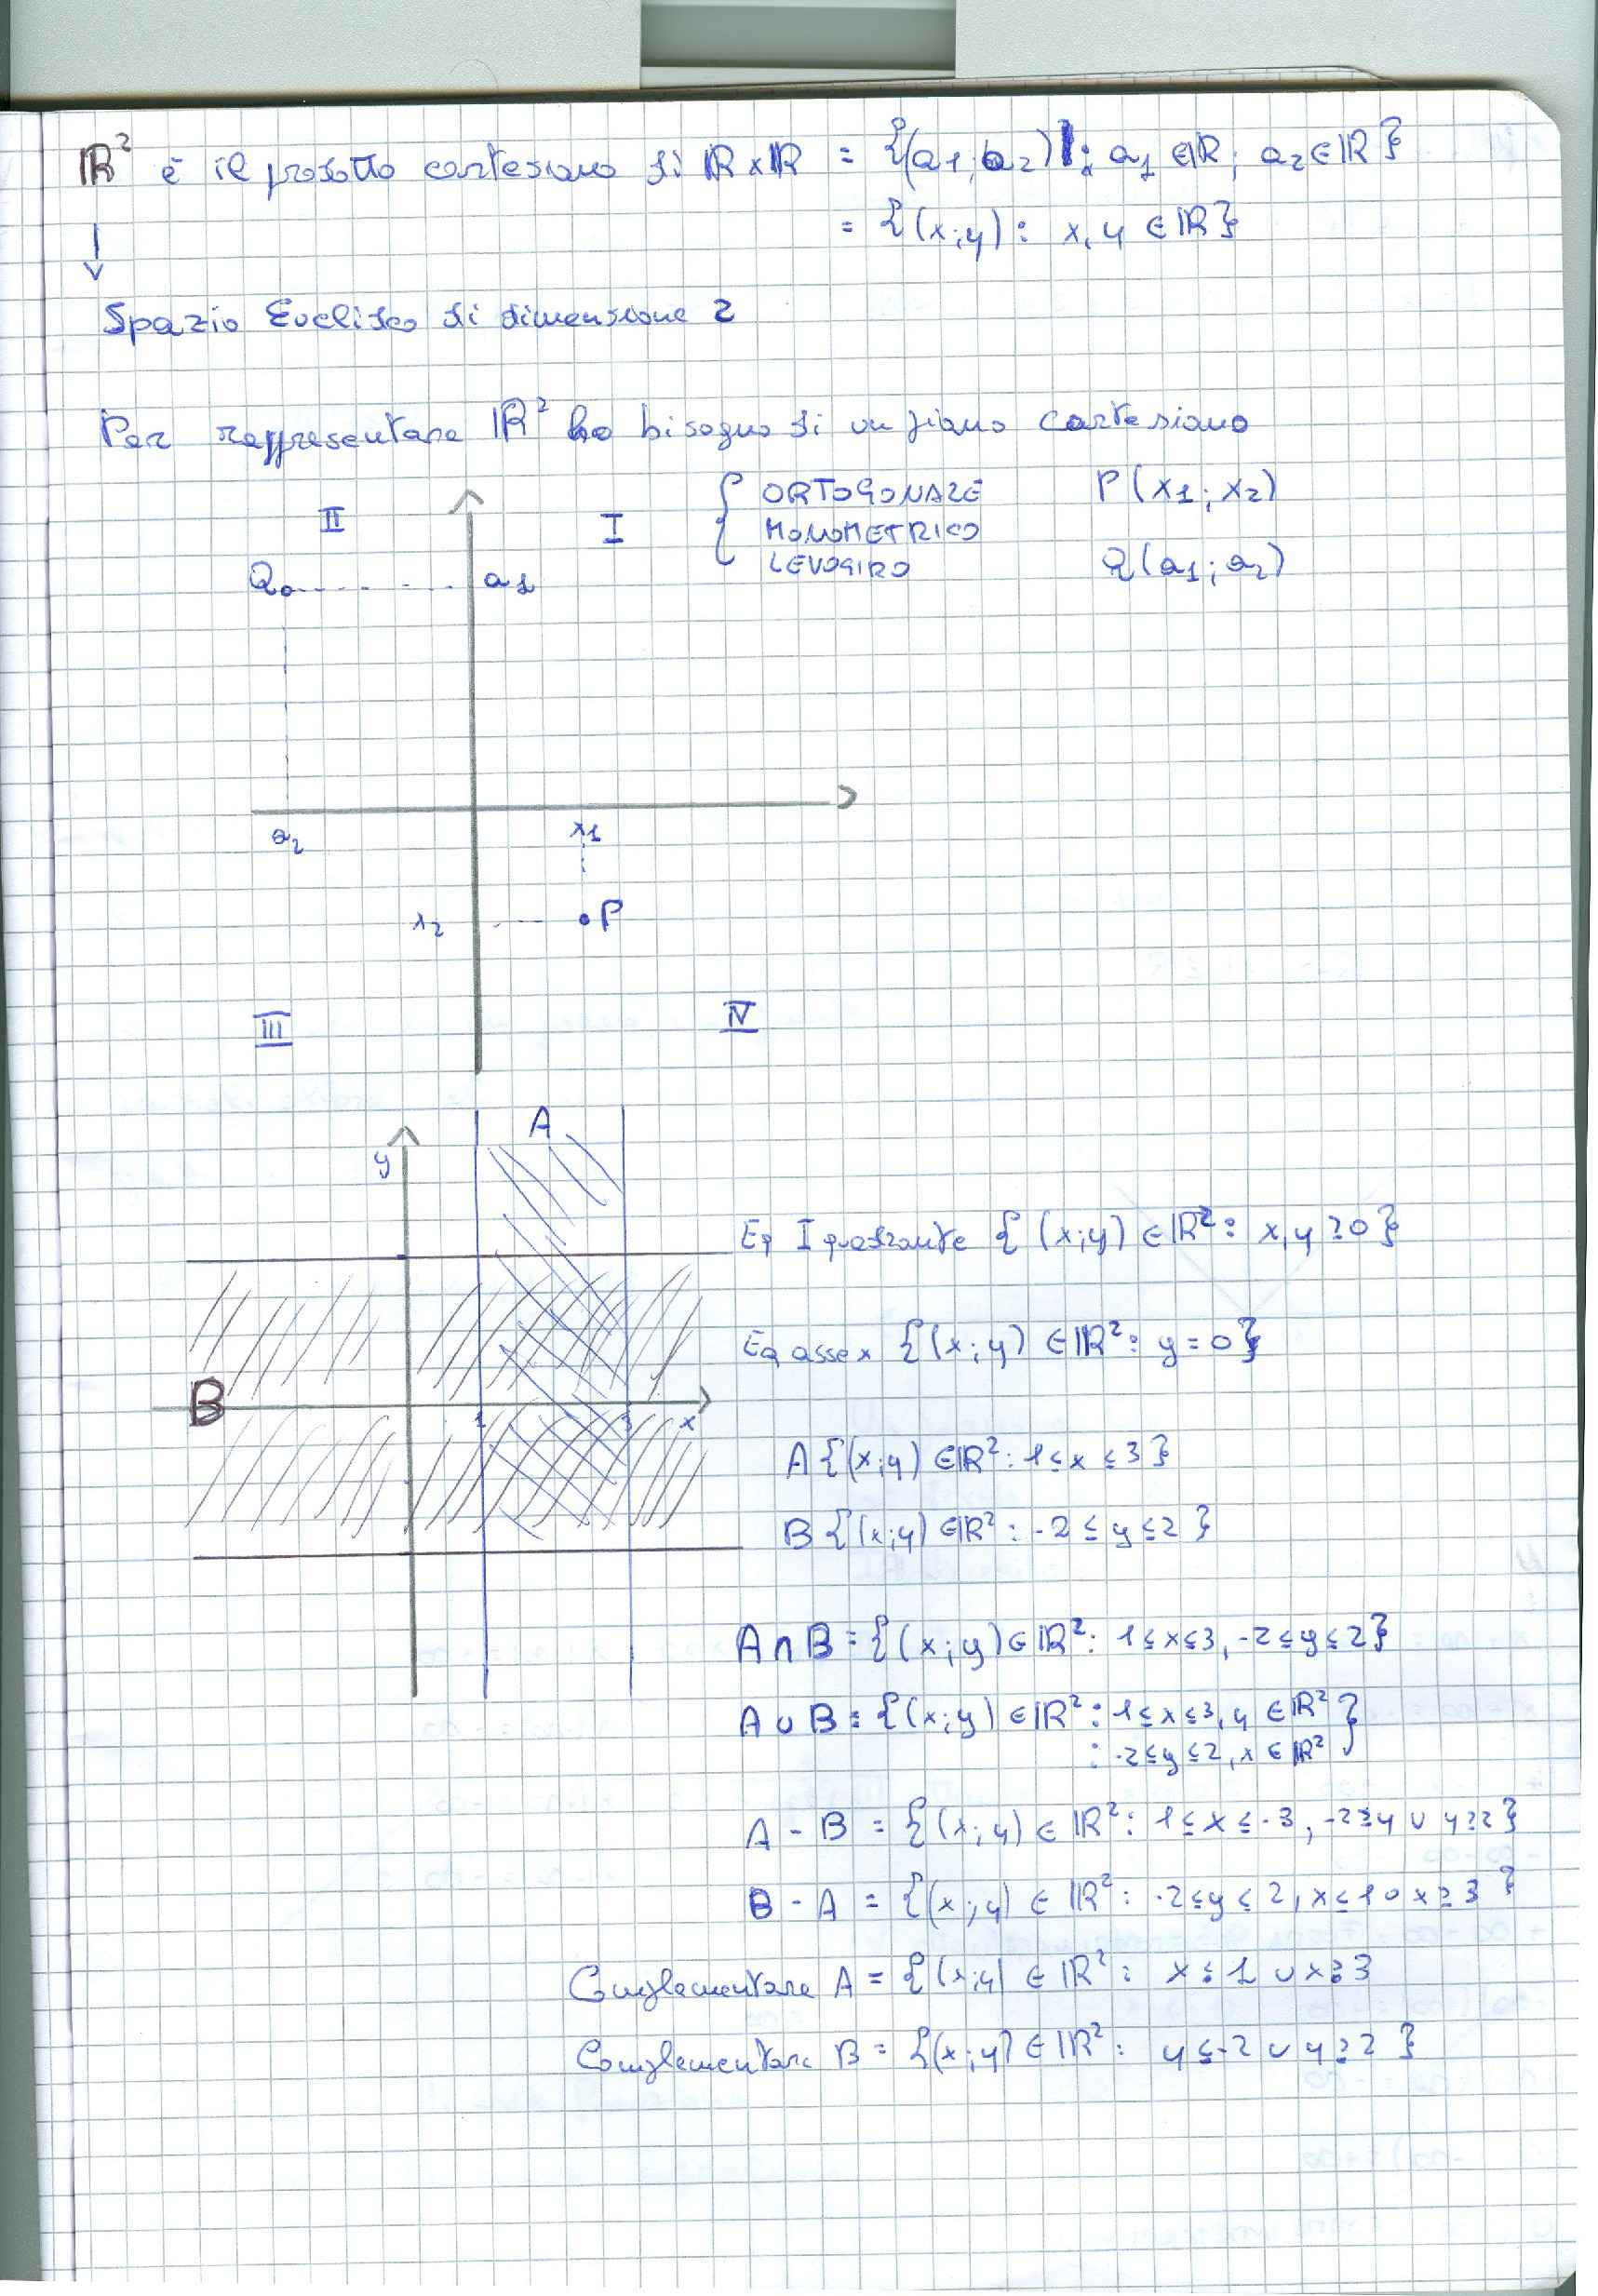 ℝ² è il prodotto cartesiano di ℝ x ℝ = {(a₁; a₂) : a₁ ∈ ℝ; a₂ ∈ ℝ}
= {(x;y) : x, y ∈ ℝ}
↓
Spazio Euclideo di dimensione 2
Per rappresentare ℝ² ho bisogno di un piano cartesiano
II
I
{ ORTOGONALE
MONOMETRICO
LEVOGIRO
P(x₁; x₂)
Q(a₁; a₂)
Q
a₁
a₂
x₁
x₂
P
III
IV
A
y
B
1
3
x
Eq I quadrante {(x;y) ∈ ℝ² : x, y ≥ 0}
Eq asse x {(x;y) ∈ ℝ² : y = 0}
A {(x;y) ∈ ℝ² : 1 ≤ x ≤ 3}
B {(x;y) ∈ ℝ² : -2 ≤ y ≤ 2}
A ∩ B = {(x;y) ∈ ℝ² : 1 ≤ x ≤ 3, -2 ≤ y ≤ 2}
A ∪ B = {(x;y) ∈ ℝ² : 1 ≤ x ≤ 3, y ∈ ℝ²
: -2 ≤ y ≤ 2, x ∈ ℝ² }
A - B = {(x;y) ∈ ℝ² : 1 ≤ x ≤ -3, -2 ≥ y ∪ y ≥ 2}
B - A = {(x;y) ∈ ℝ² : -2 ≤ y ≤ 2, x ≤ 1 ∪ x ≥ 3}
Complementare A = {(x;y) ∈ ℝ² : x ≤ 1 ∪ x ≥ 3
Complementare B = {(x;y) ∈ ℝ² : y ≤ -2 ∪ y ≥ 2}